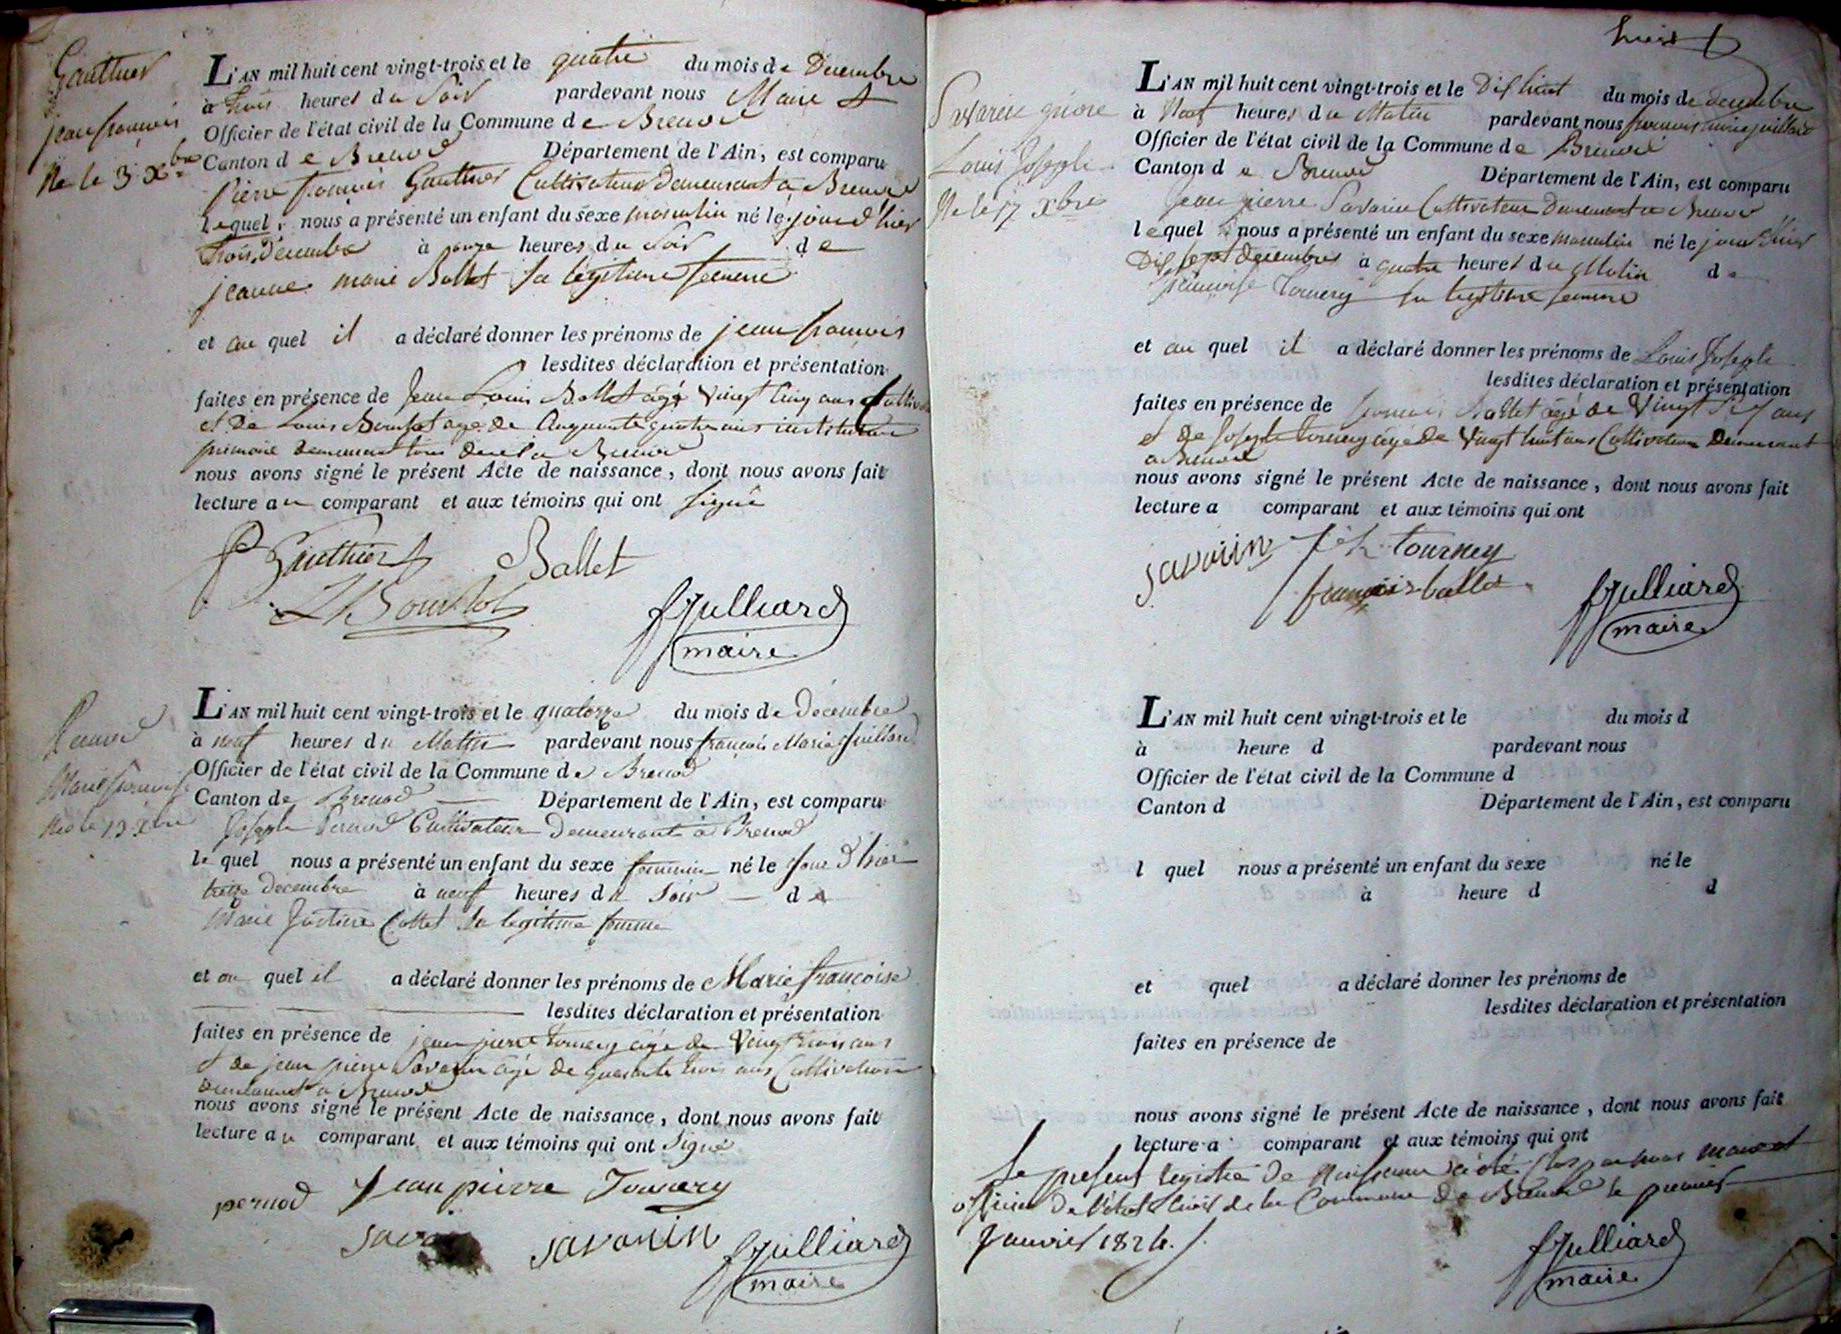 Gauthier
jean françois
Né le 3 Xbre
L'AN mil huit cent vingt-trois et le quatre du mois de Decembre
à trois heures du Soir pardevant nous Maire &
Officier de l'état civil de la Commune de Brenod
Canton de Brenod Département de l'Ain, est comparu
Pierre françois Gauthier Cultivateur Demeurant a Brenod
lequel nous a présenté un enfant du sexe masculin né le jour d'hier
trois Decembre à onze heures du Soir de
jeanne marie Ballet sa légitime femme
et au quel il a déclaré donner les prénoms de jean françois
lesdites déclaration et présentation
faites en présence de Jean Louis Ballet agé Vingt Cinq ans Cultiv
et De Louis Bourbot age de Cinquante quatre ans instituteur
primaire demeurant tous deux a Brenod
nous avons signé le présent Acte de naissance, dont nous avons fait
lecture au comparant et aux témoins qui ont signé
P Gauthier Ballet
L Bourbot
fJulliard
maire
Pernod
Marie françoise
Née le 13 Xbre
L'AN mil huit cent vingt-trois et le quatorze du mois de Décembre
à neuf heures du Matin pardevant nous françois Marie Juilliard
Officier de l'état civil de la Commune de Brenod
Canton de Brenod Département de l'Ain, est comparu
Joseph Pernod Cultivateur Demeurant à Brenod
le quel nous a présenté un enfant du sexe feminin né le jour d'hier
treize decembre à neuf heures du Soir de
Marie Justine Collet sa legitime femme
et au quel il a déclaré donner les prénoms de Marie françoise
lesdites déclaration et présentation
faites en présence de jean pierre tournery agé de Vingt trois ans
et de jean pierre Savarin agé de quarante trois ans Cultivateurs
demeurant a Brenod
nous avons signé le présent Acte de naissance, dont nous avons fait
lecture au comparant et aux témoins qui ont Signé
pernod Jean pierre Tournery
savarin
fJulliard
maire
huit
Savarin
Louis Joseph
Né le 17 Xbre
L'AN mil huit cent vingt-trois et le Dix huit du mois de decembre
à Neuf heures du Matin pardevant nous francois marie juilliard
Officier de l'état civil de la Commune de Brenod
Canton de Brenod Département de l'Ain, est comparu
Jean pierre Savarin Cultivateur Demeurant a Brenod
lequel nous a présenté un enfant du sexe masculin né le jour d'hier
Dix sept decembre à quatre heures du Matin de
françoise Tournery sa legitime femme
et au quel il a déclaré donner les prénoms de Louis Joseph
lesdites déclaration et présentation
faites en présence de françois Ballet agé de Vingt Six ans
et de Joseph tournery agé de Vingt huit ans Cultivateurs Demeurant
a Brenod
nous avons signé le présent Acte de naissance, dont nous avons fait
lecture a comparant et aux témoins qui ont
savarin tournery
françois ballet
fJulliard
maire
L'AN mil huit cent vingt-trois et le du mois d
à heure d pardevant nous
Officier de l'état civil de la Commune d
Canton d Département de l'Ain, est comparu
l quel nous a présenté un enfant du sexe né le
à heure d d
et quel a déclaré donner les prénoms de
lesdites déclaration et présentation
faites en présence de
nous avons signé le présent Acte de naissance, dont nous avons fait
lecture a comparant et aux témoins qui ont
Le présent registre de Naissance a été Clos par nous maire et
officier De l'état Civil de la Commune de Brenod le premier
Janvier 1824.
fJulliard
maire